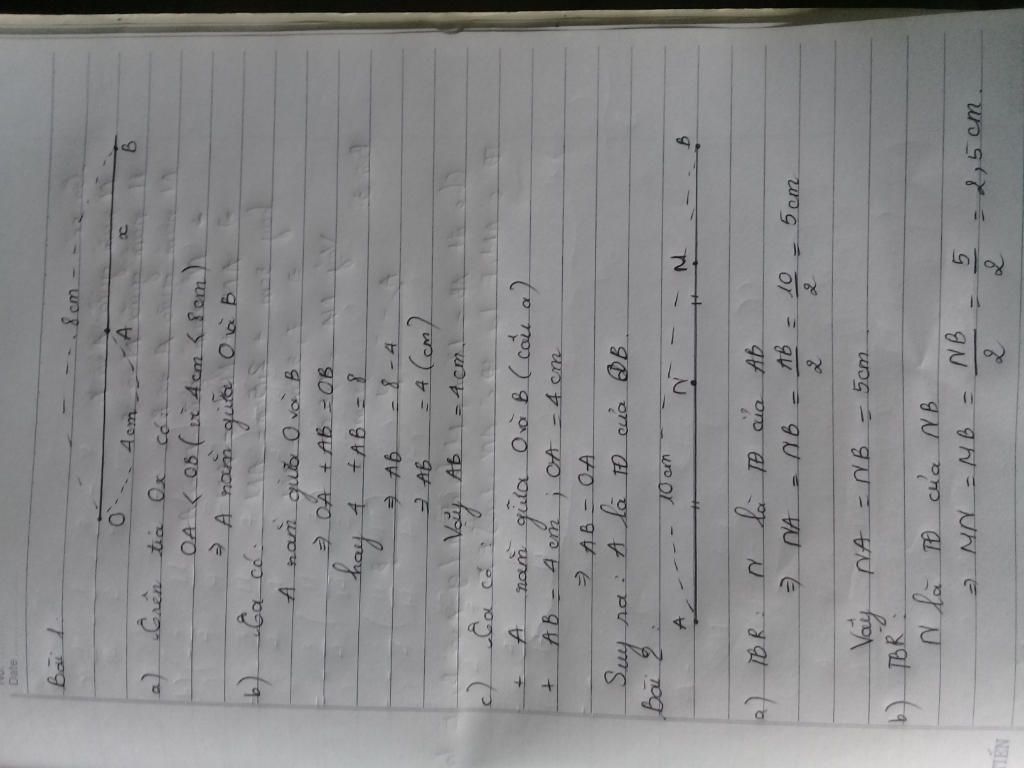 No.
Date
Bài 1:
8cm
4cm
O A x B
a) Trên tia Ox có:
OA < OB (vì 4cm < 8cm)
⇒ A nằm giữa O và B
b) Ta có:
A nằm giữa O và B
⇒ OA + AB = OB
hay 4 + AB = 8
⇒ AB = 8 - 4
⇒ AB = 4 (cm)
Vậy AB = 4cm
c) Ta có:
+ A nằm giữa O và B (câu a)
+ AB = 4 cm ; OA = 4 cm
⇒ AB = OA
Suy ra: A là TĐ của OB
Bài 2:
10cm
A N N B
a) TBR: N là TĐ của AB
⇒ NA = NB = AB/2 = 10/2 = 5cm
Vậy NA = NB = 5cm
b) TBR:
N là TĐ của NB
⇒ MN = MB = NB/2 = 5/2 = 2,5cm.
TIẾN